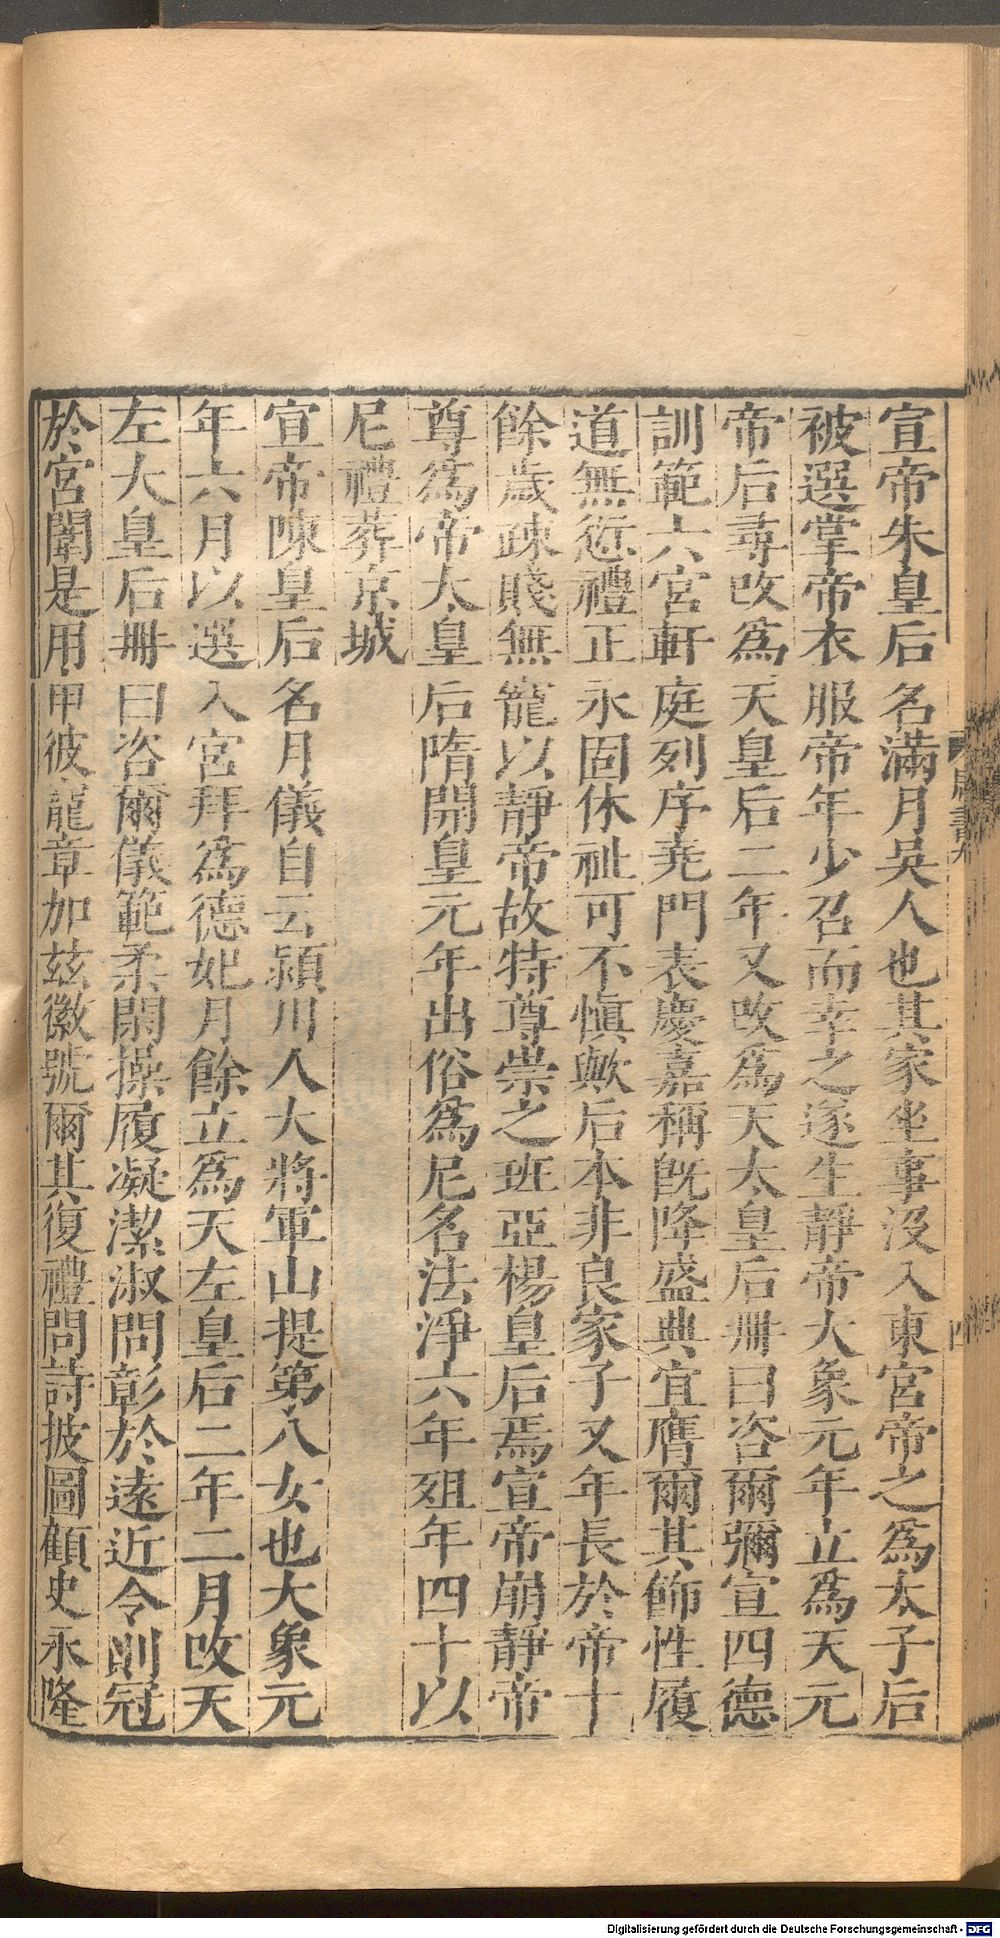 宣帝朱皇后名滿月吳人也其家坐事沒入東宮帝之爲太子后
被選掌帝衣服帝年少召而幸之遂生靜帝大象元年立爲天元
帝后尋改爲天皇后二年又改爲天太皇后冊曰咨爾彌宣四德
訓範六宮軒庭列序堯門表慶嘉稱旣降盛典宜膺爾其飾性履
道無愆禮正永固休祉可不愼歟后本非良家子又年長於帝十
餘歲疎賤無寵以靜帝故特尊崇之班亞楊皇后焉宣帝崩靜帝
尊爲帝太皇后隋開皇元年出俗爲尼名法淨六年殂年四十以
尼禮葬京城
宣帝陳皇后名月儀自云潁川人大將軍山提第八女也大象元
年六月以選入宮拜爲德妃月餘立爲天左皇后二年二月改天
左大皇后冊曰咨爾儀範柔閑操履凝潔淑問彰於遠近令則冠
於宮闈是用申彼寵章加玆徽號爾其復禮問詩披圖顧史永隆
周書九
四
Digitalisierung gefördert durch die Deutsche Forschungsgemeinschaft - DFG